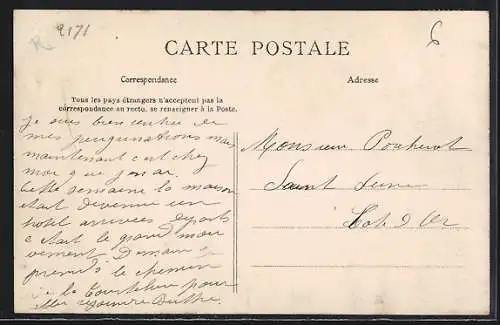 9171
6
CARTE POSTALE
Correspondance
Adresse
Tous les pays étrangers n'acceptent pas la
correspondance au recto, se renseigner à la Poste.
Je suis bien rentrée de
mes mais
maintenant c'est chez
moi que
Cette semaine la maison
était devenue un
hôtel arrivées départs
c'était le grand mou
vement. Demain je
prendrai le chemin
de la pour
aller rejoindre
Monsieur
Saint
Cote d'Or